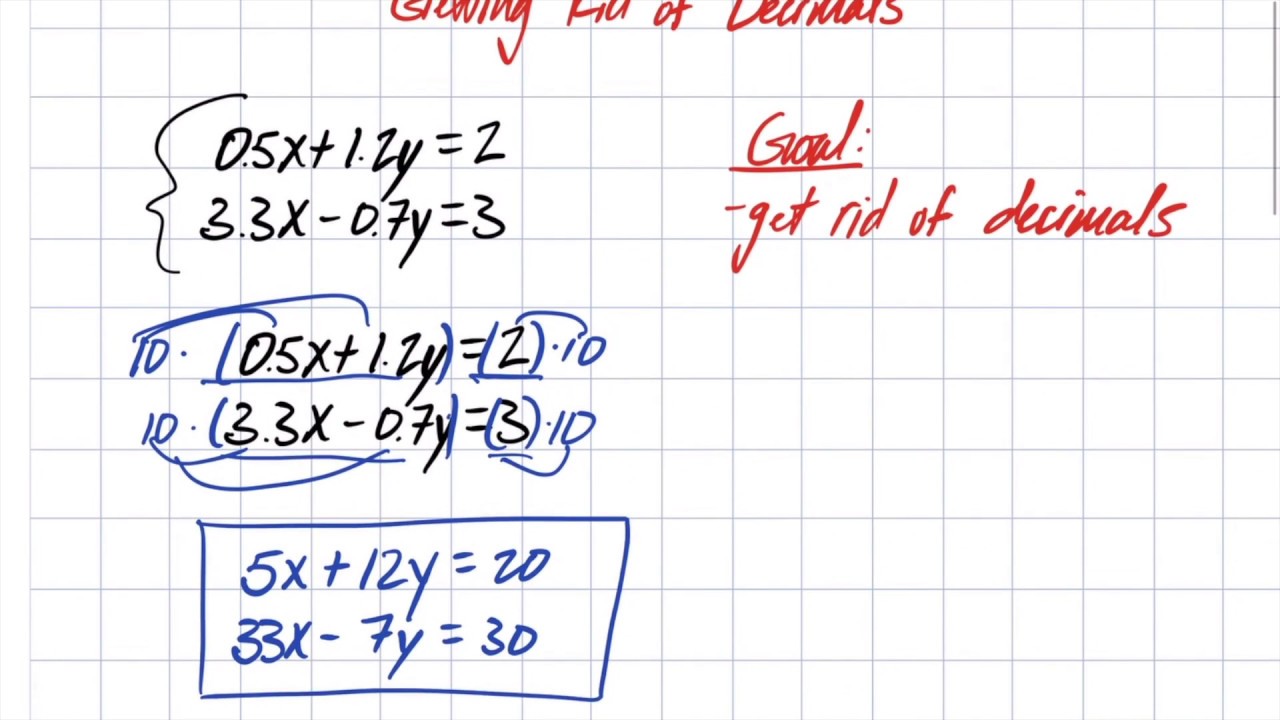 Getting Rid of Decimals
0.5x+1.2y=2
3.3x-0.7y=3
Goal:
-get rid of decimals
10·(0.5x+1.2y)=(2)·10
10·(3.3x-0.7y)=(3)·10
5x+12y=20
33x-7y=30